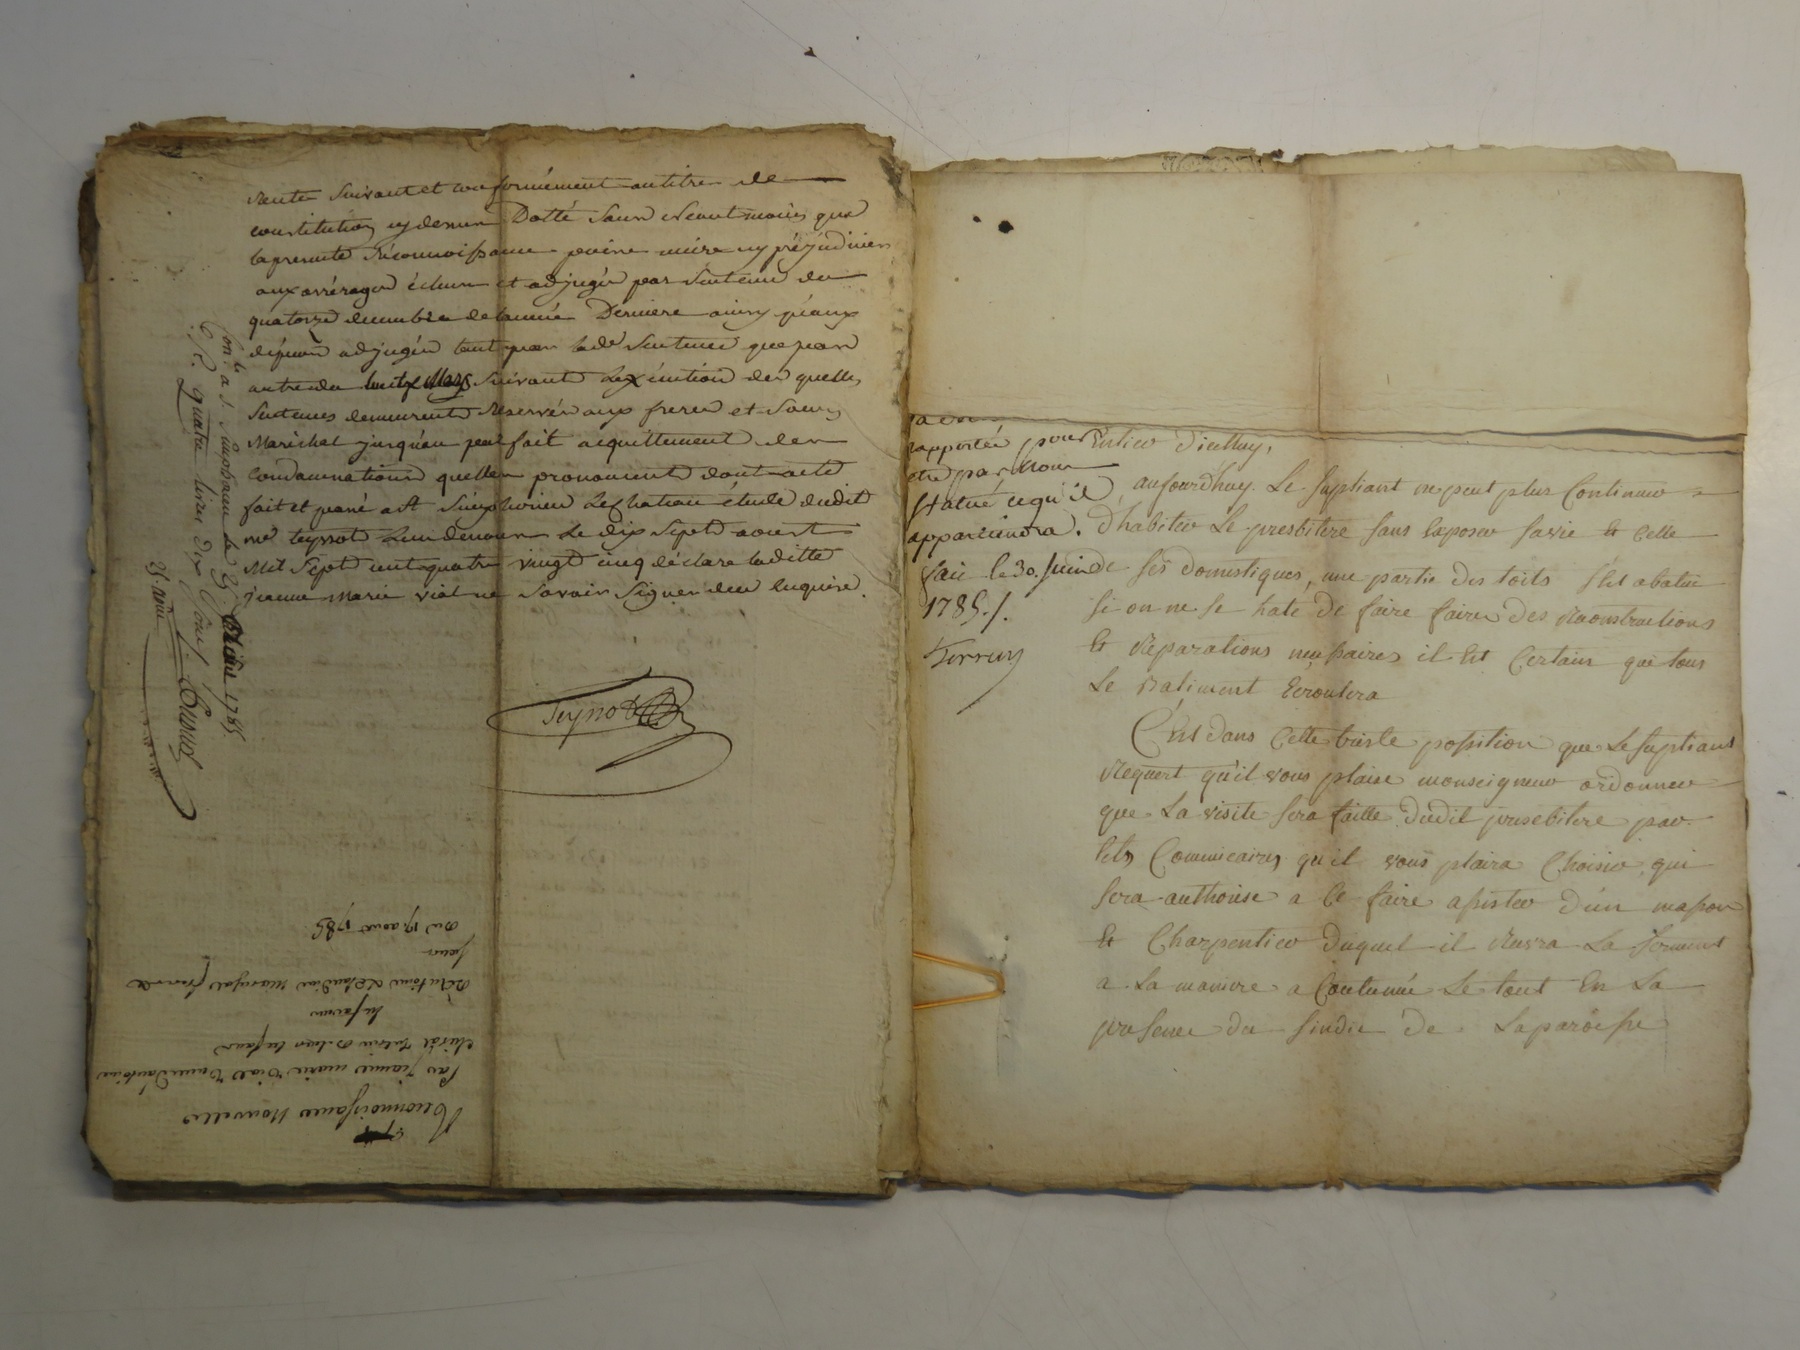 rente suivant et conformément au titre de
constitution cy dessus Datté sans néantmoins que
la presente réconnoissance puisse nuire ny préjudicier
aux arrérages échus et adjugés par sentence du
quatorze decembre de l'année Derniere ainsy qu'aux
dépens adjugés tant par lad.e sentence que par
autre du huit Mars suivant L'exécution des quelles
sentences demeurent réservés aux freres et soeurs
Marichal jusqu'au parfait acquittement des
condamnations quelles prononcent dont acte
fait et passé a S.t Simphorien Lechateau étude dudit
me teyssot Lun de nous Le dix Sept aoust
Mil Sept cent quatre vingt cinq déclare laditte
jeanne Marie vial ne savoir signer de ce enquise.
Con.lé a S. Simphorien le 25 aout 1785.
R. quatre livres dix sous
25 aout
Reconnoissance Nouvelle
Par jeanne marie vial veuve d'antoine
A antoine & Claudine marichal frere &
soeur
Du 17 aout 1785
rapportée pour
etre par Nous
statué ce qu'il
appartiendra.
fait le 30. juin
1785./.
Entier d'icelluy,
aujourdhuy. Le supliant ne peut plus Continuer
d'habiter Le presbitere sans Exposer sa vie Et Celle
de ses domestiques, une partie des toits s'Est abatue
si on ne se hate De faire faire Des reconstructions
Et Reparations necessaires il Est Certain que tout
Le Batiment Ecroulera
C'Est dans Cette triste position que Le supliant
Requert qu'il vous plaise monseigneur ordonner
que La visite sera faitte dudit presbitere par
tels Commicaires qu'il vous plaira Choisir, qui
sera authorisé a Ce faire assister d'un masson
Et Charpentier duquel il Recevra Le serment
a La maniere a Coutumée Le tout En La
presence du sindic de La paroisse